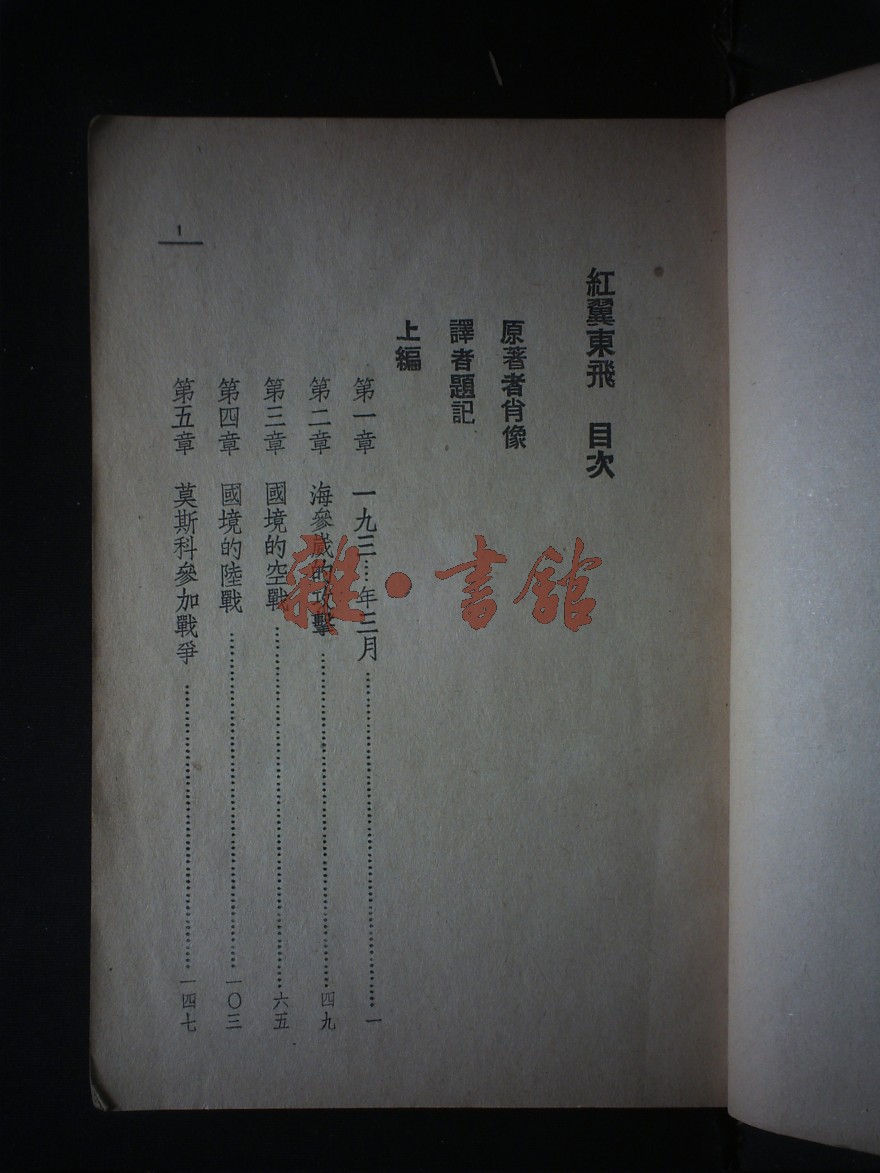 紅翼東飛 目次
原著者肖像
譯者題記
上編
第一章 一九三…年三月……一
第二章 海參崴的攻擊……四九
第三章 國境的空戰……六五
第四章 國境的陸戰……一〇三
第五章 莫斯科參加戰爭……一四七
1
雜·書館